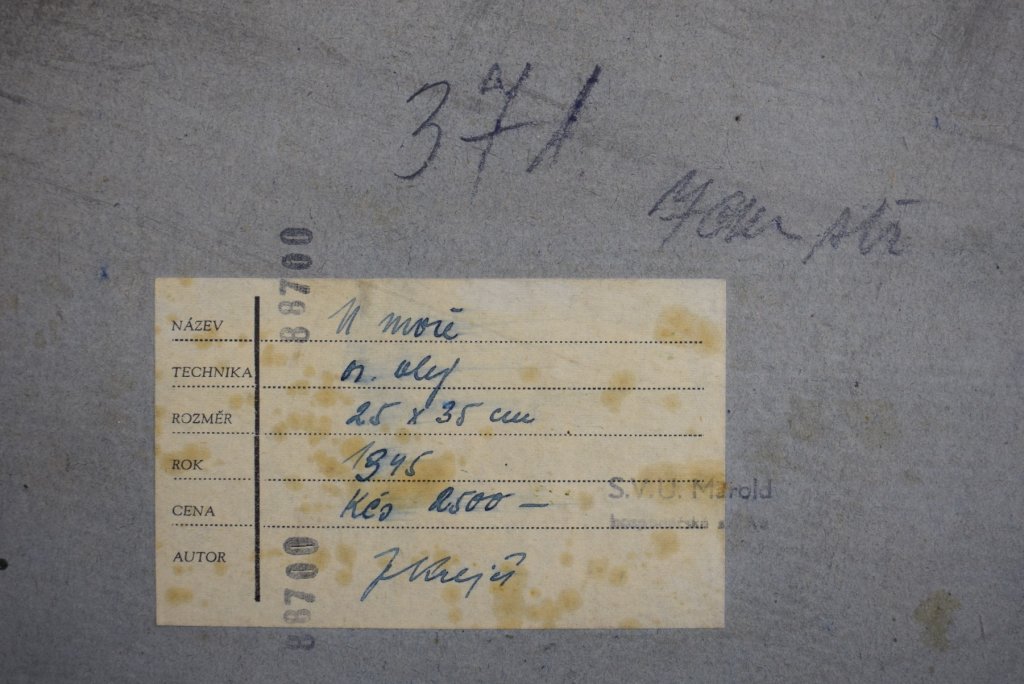 371
88700
NÁZEV U moře
TECHNIKA or. olej
ROZMĚR 25 x 35 cm
ROK 1945
CENA Kčs 2500 —
S.V.U. Marold
AUTOR J Krejčí
88700